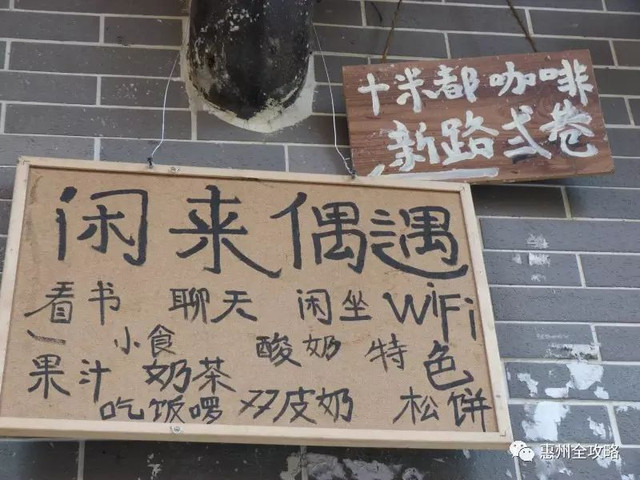 十米都咖啡
新路弍巷
闲来偶遇
看书 聊天 闲坐 WiFi
小食 酸奶 特色
果汁 奶茶
吃饭啰 双皮奶 松饼
惠州全攻略